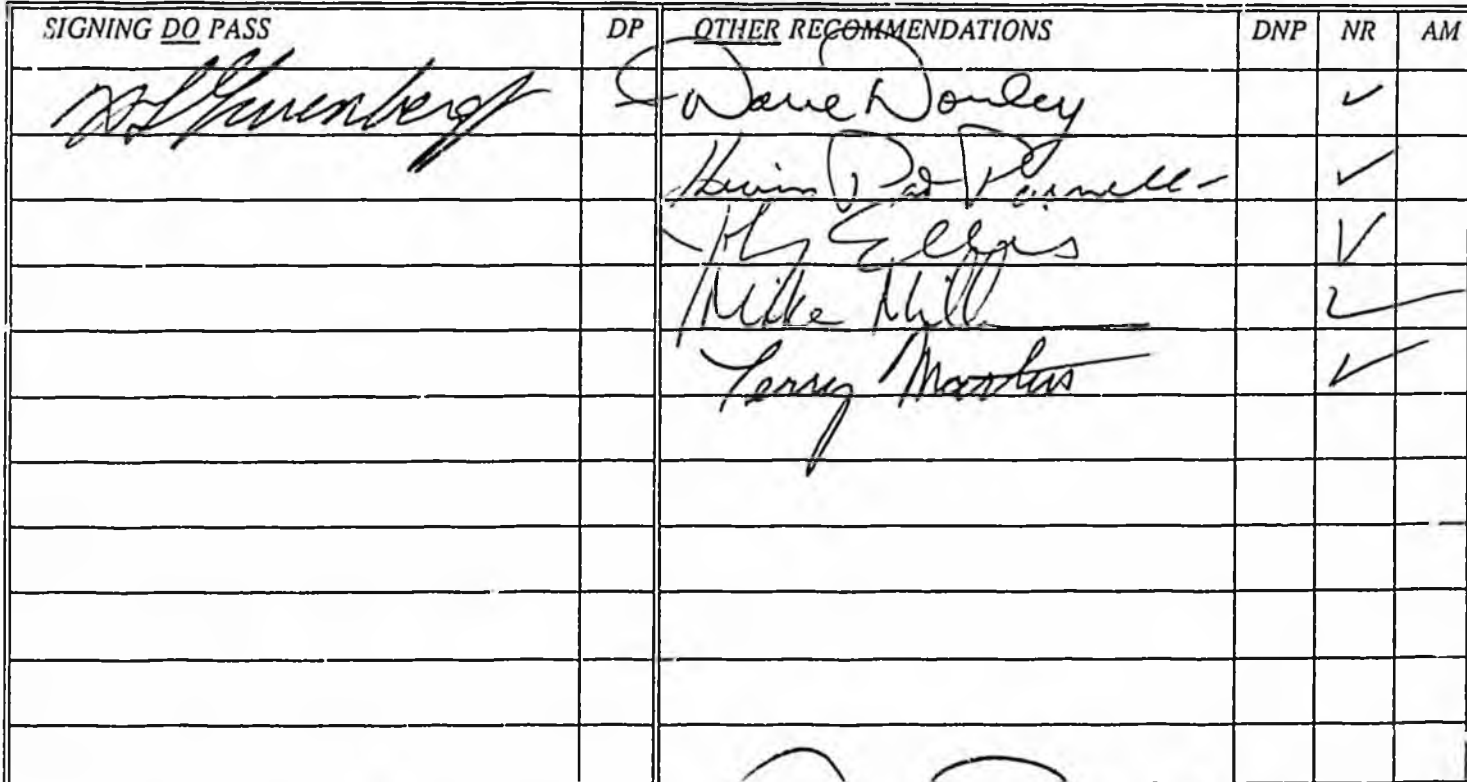 SIGNING DO PASS DP OTHER RECOMMENDATIONS DNP NR AM
Dave Donley ✓
Kevin Pat Parnell ✓
✓
Mike Mill ✓
Terry Martin ✓